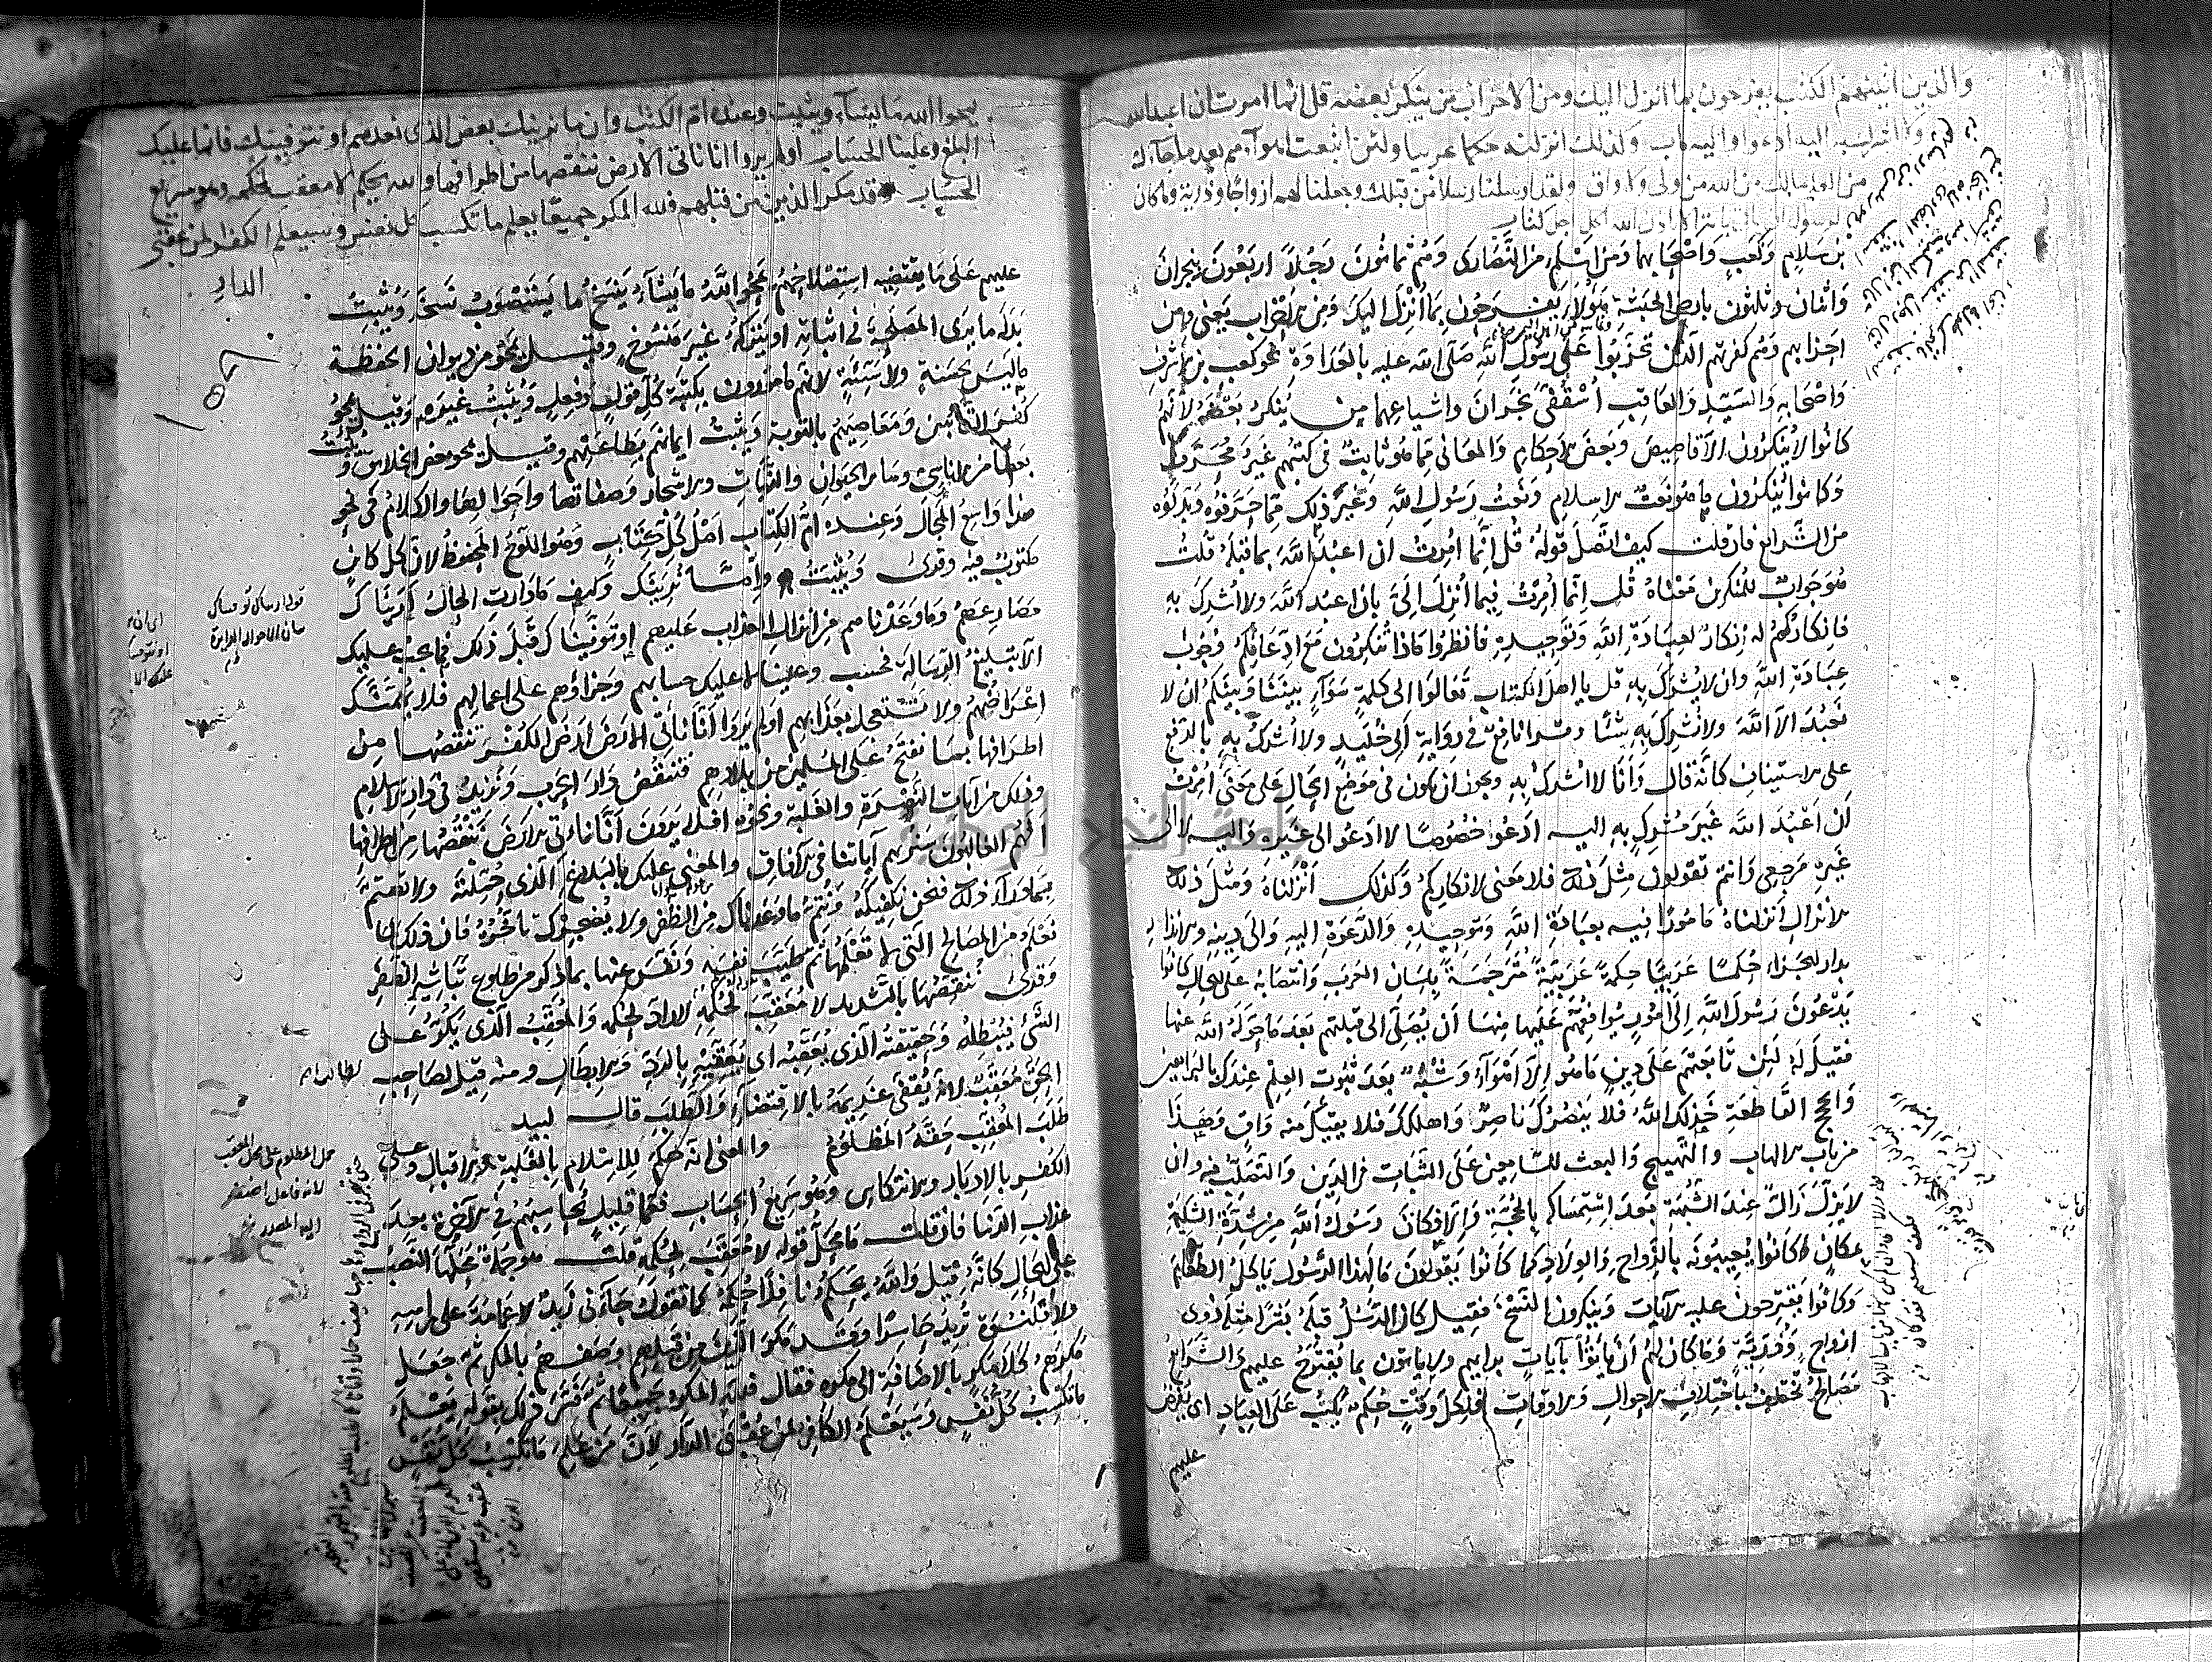 والذين اتينهم الكتب يفرحون بما انزل اليك ومن الاحزاب من ينكر بعضه قل انما امرت ان اعبد الله
ولا اشرك به اليه ادعوا واليه ماب وكذلك انزلنه حكما عربيا ولئن اتبعت اهواءهم بعد ما جاءك
من العلم مالك من الله من ولى ولا واق ولقد ارسلنا رسلا من قبلك وجعلنا لهم ازواجا وذرية وما كان
لرسول ان ياتى باية الا باذن الله لكل اجل كتاب
بن سلام وكعب واصحابهما ومن اسلم من النصارى وهم ثمانون رجلا اربعون بنجران
واثنان وثلثون بارض الحبشة هؤلاء يفرحون بما انزل اليك ومن الاحزاب يعنى ومن
احزابهم وهم كفرتهم الذين تحزبوا على رسول الله صلى الله عليه بالعداوة نحو كعب بن الاشرف
واصحابه والسيد والعاقب اسقفى نجران واشياعهما من ينكر بعضه لانهم
كانوا لا ينكرون الاقاصيص وبعض الاحكام والمعانى مما هو ثابت فى كتبهم غير محرف
وكانوا ينكرون ما هو نعت الاسلام ونعت رسول الله وغير ذلك مما حرفوه وبدلوه
من الشرائع فان قلت كيف اتصل قوله قل انما امرت ان اعبد الله بما قبله قلت
هو جواب للمنكرين معناه قل انما امرت فيما انزل الى بان اعبد الله ولا اشرك به
فانكاركم له انكار لعبادة الله وتوحيده فانظروا ماذا تنكرون مع ادعائكم وجوب
عبادة الله وان لا يشرك به قل يا اهل الكتاب تعالوا الى كلمة سواء بيننا وبينكم ان لا
نعبد الا الله ولا نشرك به شيئا وقرا نافع فى رواية ابى خليد ولا اشرك به بالرفع
على الاستيناف كانه قال وانا لا اشرك به ويجوز ان يكون فى موضع الحال على معنى امرت
ان اعبد الله غير مشرك به اليه ادعو خصوصا لا ادعو الى غيره واليه لا الى
غيره مرجعى وانتم تقولون مثل ذلك فلا معنى لانكاركم وكذلك انزلناه ومثل ذلك
الانزال انزلناه مامورا فيه بعبادة الله وتوحيده والدعوة اليه والى دينه والانذار
بدار الجزاء حكما عربيا حكمة عربية مترجمة بلسان العرب وانتصابه على الحال كانوا
يدعون رسول الله الى امور يوافقهم عليها منها ان يصلى الى قبلتهم بعد ما حوله الله عنها
فقيل له لئن تابعتهم على دين ما هو الا اهواء وشبه بعد ثبوت العلم عندك بالبراهين
والحجج القاطعة خذلك الله فلا ينصرك ناصر واهلكك فلا يقيك منه واق وهذا
من باب الالهاب والتهييج والبعث للسامعين على الثبات فى الدين والتصلب فيه وان
لا يزل زال عند الشبهة بعد استمساكه بالحجة والا فكان رسول الله من شدة الشكيمة
بمكان كانوا يعيبونه بالزواج والولاد كما كانوا يقولون ما لهذا الرسول ياكل الطعام
وكانوا يقترحون عليه الآيات وينكرون النسخ فقيل كان الرسل قبله بشرا مثله ذوى
ازواج وذرية وما كان لهم ان ياتوا بآيات برايهم ولا ياتون بما يقترح عليهم والشرائع
مصالح تختلف باختلاف الاحوال والاوقات فلكل وقت حكم يكتب على العباد اى يفرض
عليهم
يمحوا الله ما يشاء ويثبت وعنده ام الكتب وان ما نرينك بعض الذى نعدهم او نتوفينك فانما عليك
البلغ وعلينا الحساب اولم يروا انا ناتى الارض ننقصها من اطرافها والله يحكم لا معقب لحكمه وهو سريع
الحساب وقد مكر الذين من قبلهم فلله المكر جميعا يعلم ما تكسب كل نفس وسيعلم الكفار لمن عقبى
الدار
عليهم على ما يقتضيه استصلاحهم يمحو الله ما يشاء ينسخ ما يستصوب نسخه ويثبت
بدله ما يرى المصلحة فى اثباته او يتركه غير منسوخ وقيل يمحو من ديوان الحفظة
ما ليس بحسنة ولا سيئة لانهم مامورون بكتبة كل قول وفعل ويثبت غيره وقيل يمحو
كفر التائبين ومعاصيهم بالتوبة ويثبت ايمانهم وطاعتهم وقيل يمحو بعض الخلائق ويثبت
بعضا من الاناسى وسائر الحيوان والنبات والاشجار وصفاتها واحوالها والكلام فى نحو
هذا واسع المجال وعنده ام الكتاب اصل كل كتاب وهو اللوح المحفوظ لان كل كائن
مكتوب فيه وقرئ ويثبت واما نرينك وكيف ما دارت الحال اريناك
مصارعهم وما وعدناهم من انزال العذاب عليهم او توفيناك قبل ذلك فما يجب عليك
الا تبليغ الرسالة فحسب وعلينا لا عليك حسابهم وجزاؤهم على اعمالهم فلا يهمنك
اعراضهم ولا تستعجل بعذابهم اولم يروا انا ناتى الارض ارض الكفر ننقصها من
اطرافها بما نفتح على المسلمين من بلادهم فننقص دار الحرب ونزيد فى دار الاسلام
وذلك من آيات النصرة والغلبة ونحوه افلا يرون انا ناتى الارض ننقصها من اطرافها
افهم الغالبون سنريهم آياتنا فى الآفاق والمعنى عليك بالبلاغ الذى حملته ولا تهتم
بما وراء ذلك فنحن نكفيكه ونتم ما وعدناك من الظفر ولا يضجرك تاخره فان ذلك لما
نعلم من المصالح التى لا تعلمها ثم طيب نفسه ونفس عنها بما ذكر من طلوع تباشير الظفر
وقرئ ننقصها بالتشديد لا معقب لحكمه لا راد لحكمه والمعقب الذى يكر على
الشئ فيبطله وحقيقته الذى يعقبه اى يقفيه بالرد والابطال ومنه قيل لصاحب
الحق معقب لانه يقفى غريمه بالاقتضاء والطلب قال لبيد
طلب المعقب حقه المظلوم والمعنى انه حكم للاسلام بالغلبة والاقبال وعلى
الكفر بالادبار والانتكاس وهو سريع الحساب فعما قليل يحاسبهم فى الآخرة بعد
عذاب الدنيا فان قلت ما محل قوله لا معقب لحكمه قلت هو جملة محلها النصب
على الحال كانه قيل والله يحكم نافذا حكمه كما تقول جاءنى زيد لا عمامة على راسه
ولا قلنسوة تريد حاسرا وقد مكر الذين من قبلهم وصفهم بالمكر ثم جعل
مكرهم كلا مكر بالاضافة الى مكره فقال فلله المكر جميعا ثم فسر ذلك بقوله يعلم
ما تكسب كل نفس وسيعلم الكافر لمن عقبى الدار لان من علم ما تكسب كل نفس
حمل المظلوم على محل المعقب
لانه فاعل اضيف
اليه المصدر
جامعة النجاح الوطنية